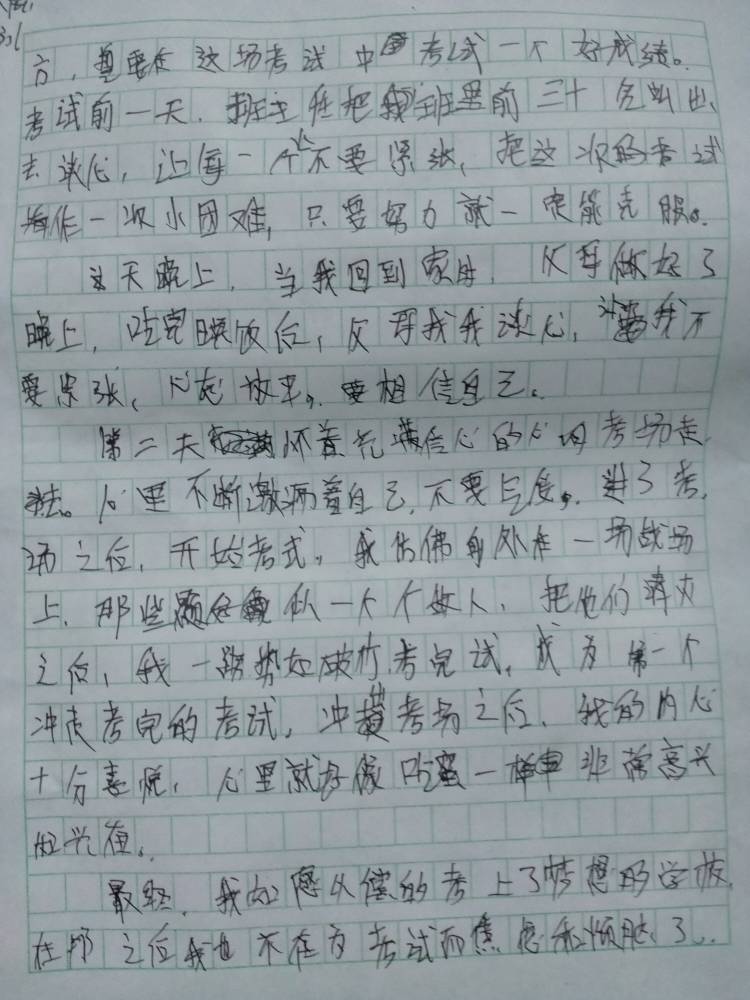 方，想要在这场考试中考试一个好成绩。
考试前一天，班主任把我班里前三十名叫出
去谈心，让每一个人不要紧张，把这次的考试
当作一次小困难，只要努力就一定能克服。
这天晚上，当我回到家时，父母做好了
晚上，吃完晚饭后，父母找我谈心，让我不
要紧张，心态放平，要相信自己。
第二天怀着充满信心的心向考场走
去。心里不断激励着自己，不要气馁，进了考
场之后，开始考式。我仿佛身处在一场战场
上，那些题似一个个敌人，把他们
之后，我一路势如破竹考完试，成为第一个
冲走考完的考试，冲出考场之后，我的内心
十分喜悦，心里就好像吃蜜一样非常高兴
最终，我如愿以偿的考上了梦想的学校，
在那之后我也不在为考试而焦虑和烦脑了。